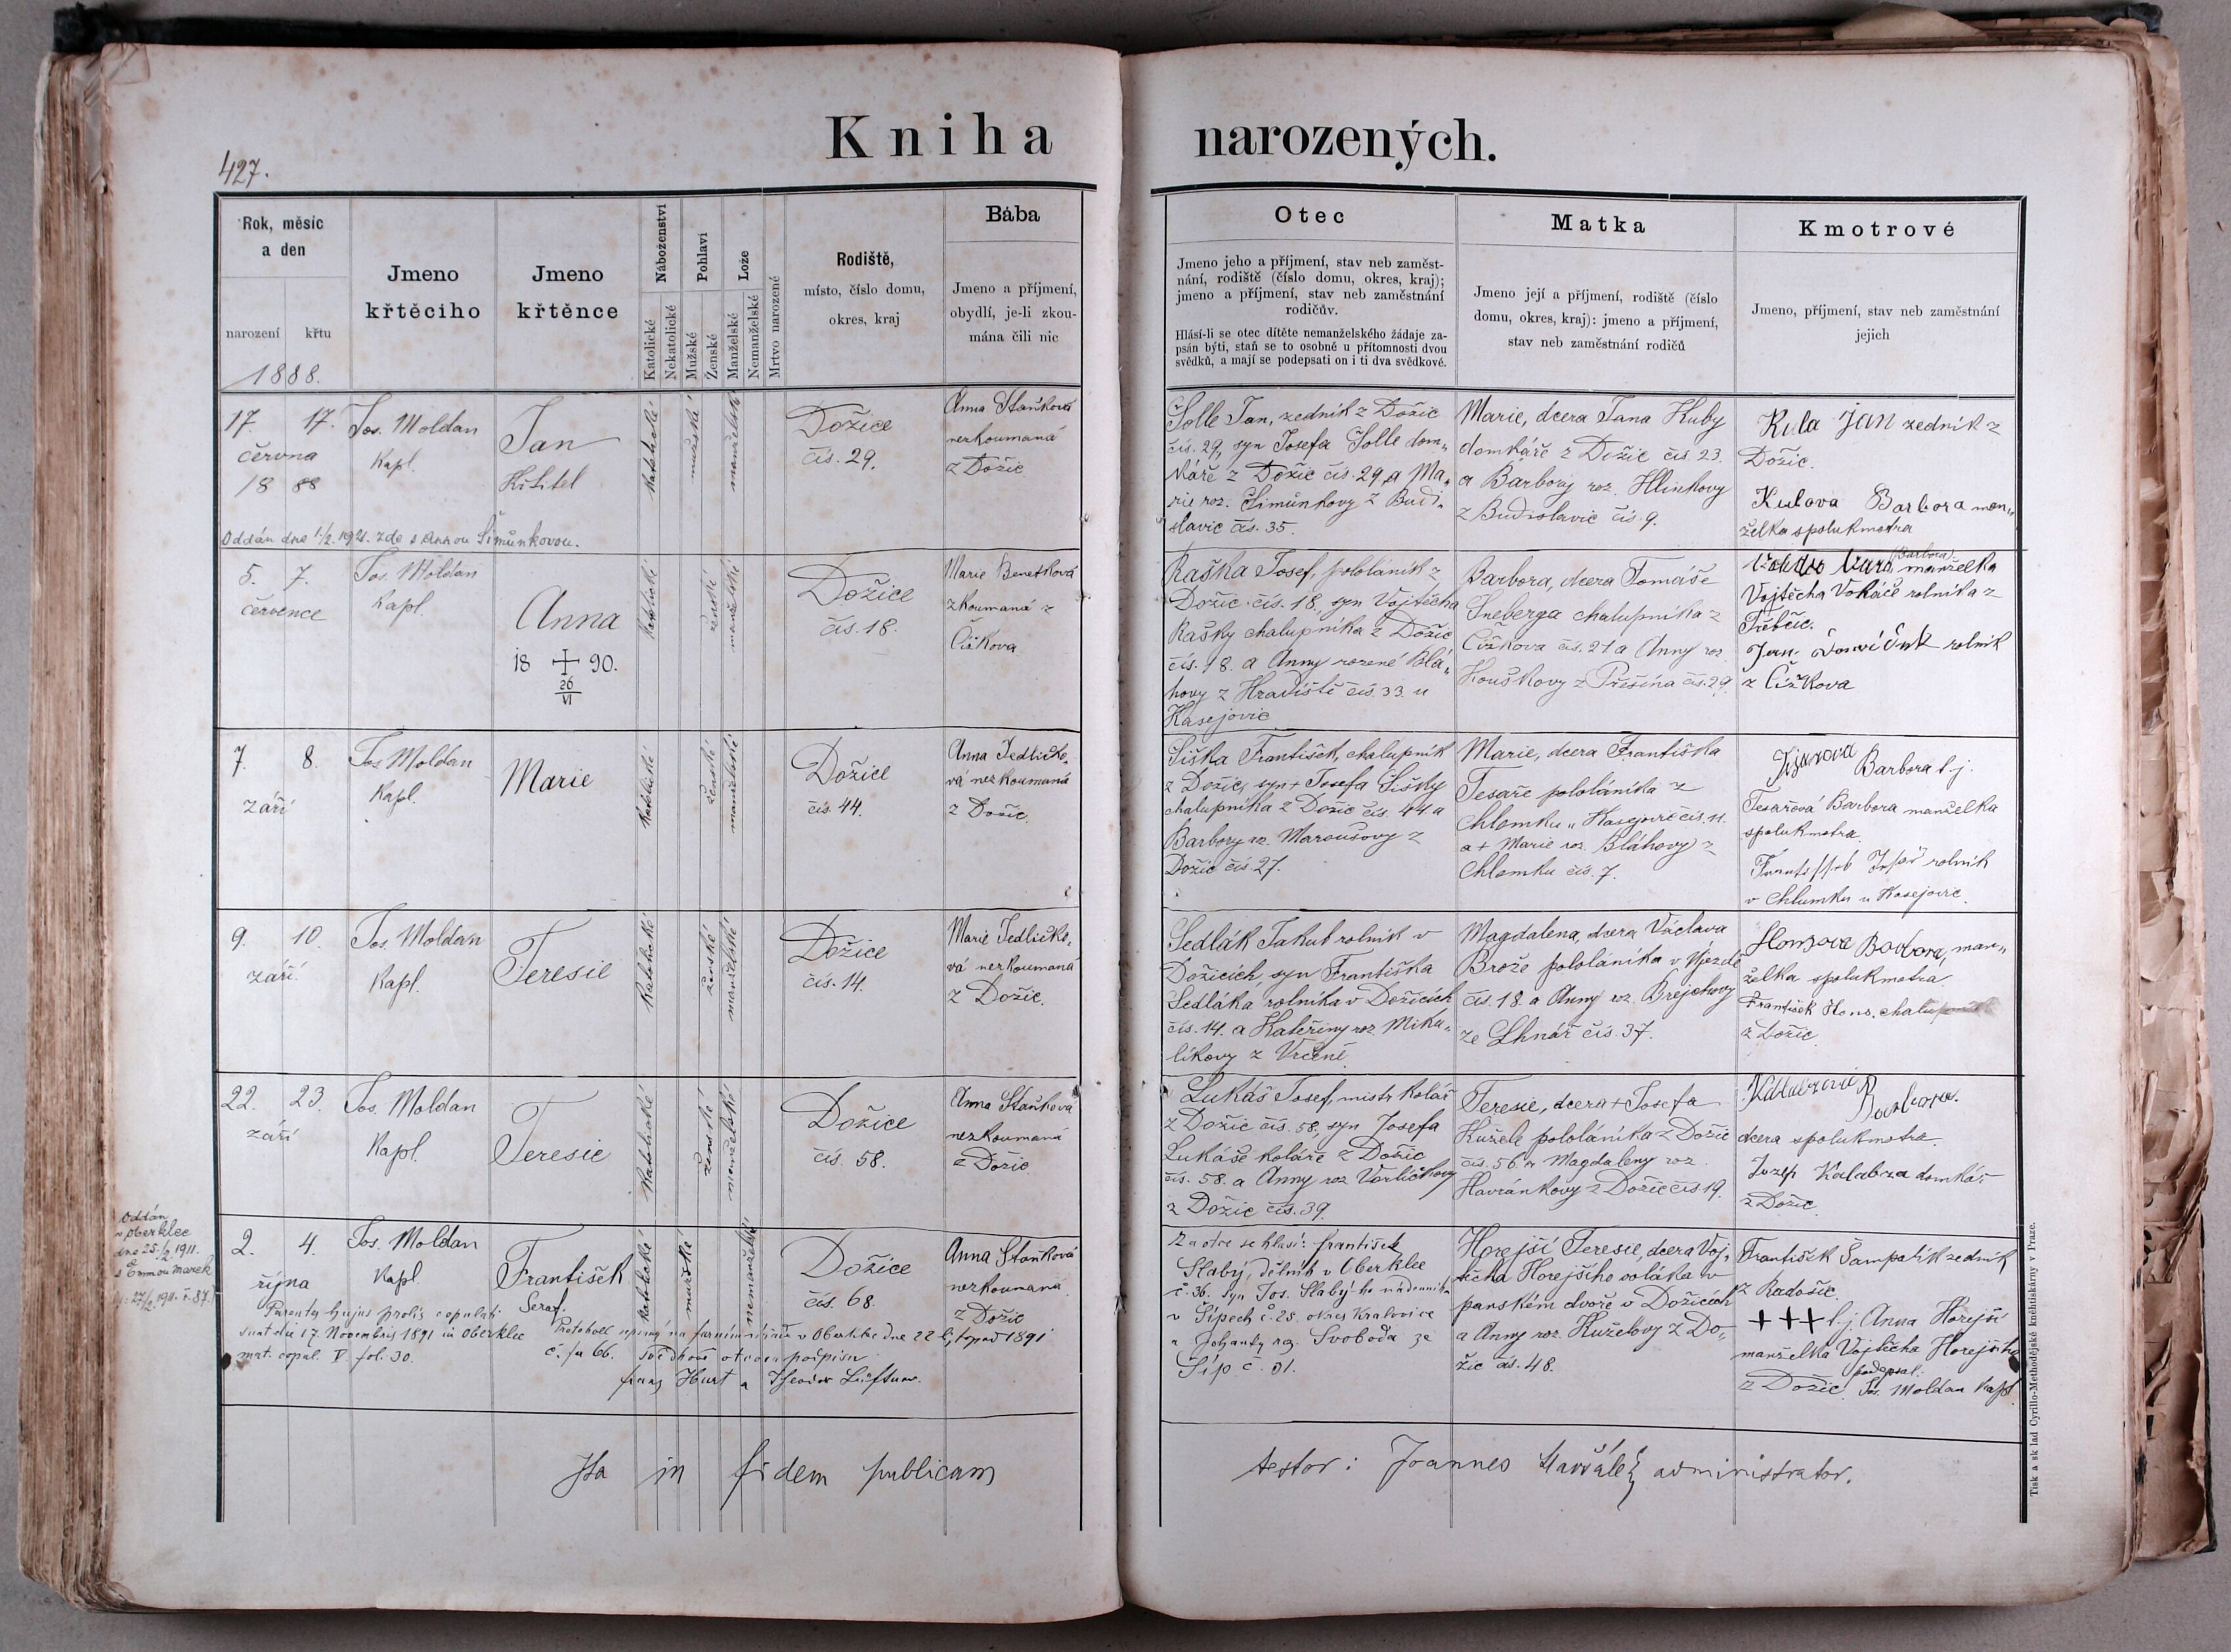 Kniha narozených.
427.
Rok, měsíc
a den
narození křtu
1888.
Jmeno
křtěcího
Jmeno
křtěnce
Náboženství
Katolické
Nekatolické
Pohlaví
Mužské
Ženské
Lože
Manželské
Nemanželské
Mrtvo narozené
Rodiště,
místo, číslo domu,
okres, kraj
Bába
Jmeno a příjmení,
obydlí, je-li zkou-
mána čili nic
Otec
Jmeno jeho a příjmení, stav neb zaměst-
nání, rodiště (číslo domu, okres, kraj);
jmeno a příjmení, stav neb zaměstnání
rodičův.
Hlásí-li se otec dítěte nemanželského žádaje za-
psán býti, staň se to osobně u přítomnosti dvou
svědků, a mají se podepsati on i ti dva svědkové.
Matka
Jmeno její a příjmení, rodiště (číslo
domu, okres, kraj): jmeno a příjmení,
stav neb zaměstnání rodičů
Kmotrové
Jmeno, příjmení, stav neb zaměstnání
jejich
17. 17.
června
18 88
Jos. Moldan
Kapl.
Jan
Křtitel
katolické
mužské
manželské
Dožice
čís. 29.
Anna Staňková
nezkoumaná
z Dožic
Šolle Jan, zedník z Dožic
čís. 29, syn Josefa Šolle dom„
káře z Dožic čís. 29 a Ma„
rie roz. Šimůnkovy z Budi„
slavic čís. 35.
Marie, dcera Jana Kuby
domkáře z Dožic čís 23.
a Barbory roz. Hlinkovy
z Budislavic čís. 9.
Kula Jan zedník z
Dožic.
Kulova Barbora man„
želka spolukmotra
Oddán dne 1/2. 1921. zde s Annou Šimůnkovou.
5. 7.
července
Jos. Moldan
Kapl.
Anna
18 + 90.
26
VI
katolické
ženské
manželské
Dožice
čís. 18.
Marie Benešková
zkoumaná z
Čížkova
Raška Josef, pololáník z
Dožic čís. 18, syn Vojtěcha
Rašky chalupníka z Dožic
čís. 18. a Anny rozené Blá„
hovy z Hradiště čís. 33. u
Kasejovic
Barbora, dcera Tomáše
Šneberga chalupníka z
Čížkova čís. 21 a Anny roz.
Kouškovy z Přešína čís. 29.
(Barbora) manželka
Vojtěcha Vokáče rolníka z
Třebčic.
Jan rolník
z Čížkova
7. 8.
září
Jos. Moldan
Kapl.
Marie
katolické
ženské
manželské
Dožice
čís. 44.
Anna Jedličko„
vá nezkoumaná
z Dožic.
Šiška František, chalupník
z Dožic, syn + Josefa Šišky
chalupníka z Dožic čís. 44. a
Barbory roz. Marousovy z
Dožic čís. 27.
Marie, dcera Františka
Tesaře pololáníka z
Chlomku u Kasejovic čís. 11.
a + Marie roz. Bláhovy z
Chlomku čís. 7.
Barbora t. j.
Tesařová Barbora manželka
spolukmotra.
rolník
v Chlumku u Kasejovic.
9. 10.
září
Jos. Moldan
Kapl.
Teresie
katolické
ženské
manželské
Dožice
čís. 14.
Marie Jedličko„
vá nezkoumaná
z Dožic.
Sedlák Jakub rolník v
Dožicích, syn Františka
Sedláka rolníka v Dožicích
čís. 14. a Kateřiny roz. Miku„
líkovy z Vrčeně
Magdalena, dcera Václava
Brože pololáníka v Újezdě
čís. 18. a Anny roz. Brejchovy
ze Lhnář čís. 37.
Honsova Barbora, man„
želka spolukmotra
František Hons, chalupník
z Dožic
22. 23.
září
Jos. Moldan
Kapl.
Teresie
katolické
ženské
manželské
Dožice
čís. 58.
Anna Staňková
nezkoumaná
z Dožic
Lukáš Josef, mistr kolář
z Dožic čís. 58, syn Josefa
Lukáše koláře z Dožic
čís. 58. a Anny roz. Vorlíčkovy
z Dožic čís. 39.
Teresie, dcera + Josefa
Kužele pololáníka z Dožic
čís. 56. a Magdaleny roz.
Havránkovy z Dožic čís 19.
Barbora.
dcera spolukmotra.
Jozef Kalabza domkář
z Dožic.
Oddán
v Oberklee
dne 25./2 1911.
s Emmou Marek
2. 4.
října
Jos. Moldan
Kapl.
František
Seraf.
katolické
mužské
nemanželské
Dožice
čís. 68.
Anna Staňková
nezkoumaná
z Dožic
Za otce se hlásí: František
Slabý, dělník v Oberklee
č. 36. syn Jos. Slabý-ho nádenníka
v Šípech č. 28. okres Kralovice
a Johanny roz. Svoboda ze
Šíp č. 31.
Horejší Teresie, dcera Voj„
těcha Horejšího voláka v
panském dvoře v Dožicích
a Anny roz. Kuželovy z Do„
žic čís. 48.
František Šampalík zedník
z Radošic.
+++ t. j. Anna Horejší
manželka Vojtěcha Horejšího
z Dožic. podepsal: Jos. Moldan kapl.
Parentes hujus prolis copulati
sunt die 17. Novembris 1891 in Oberklee
mat. copul. V fol. 30.
Protokoll sepsaný na farním úřadě v Oberklee dne 22 listopad 1891
č. fa 66. svědkové otcova podpisu
Franz Hurt a Theodor
Ita in fidem publicam testor: Joannes administrator.
Tisk a sklad Cyrillo-Methodějské knihtiskárny v Praze.